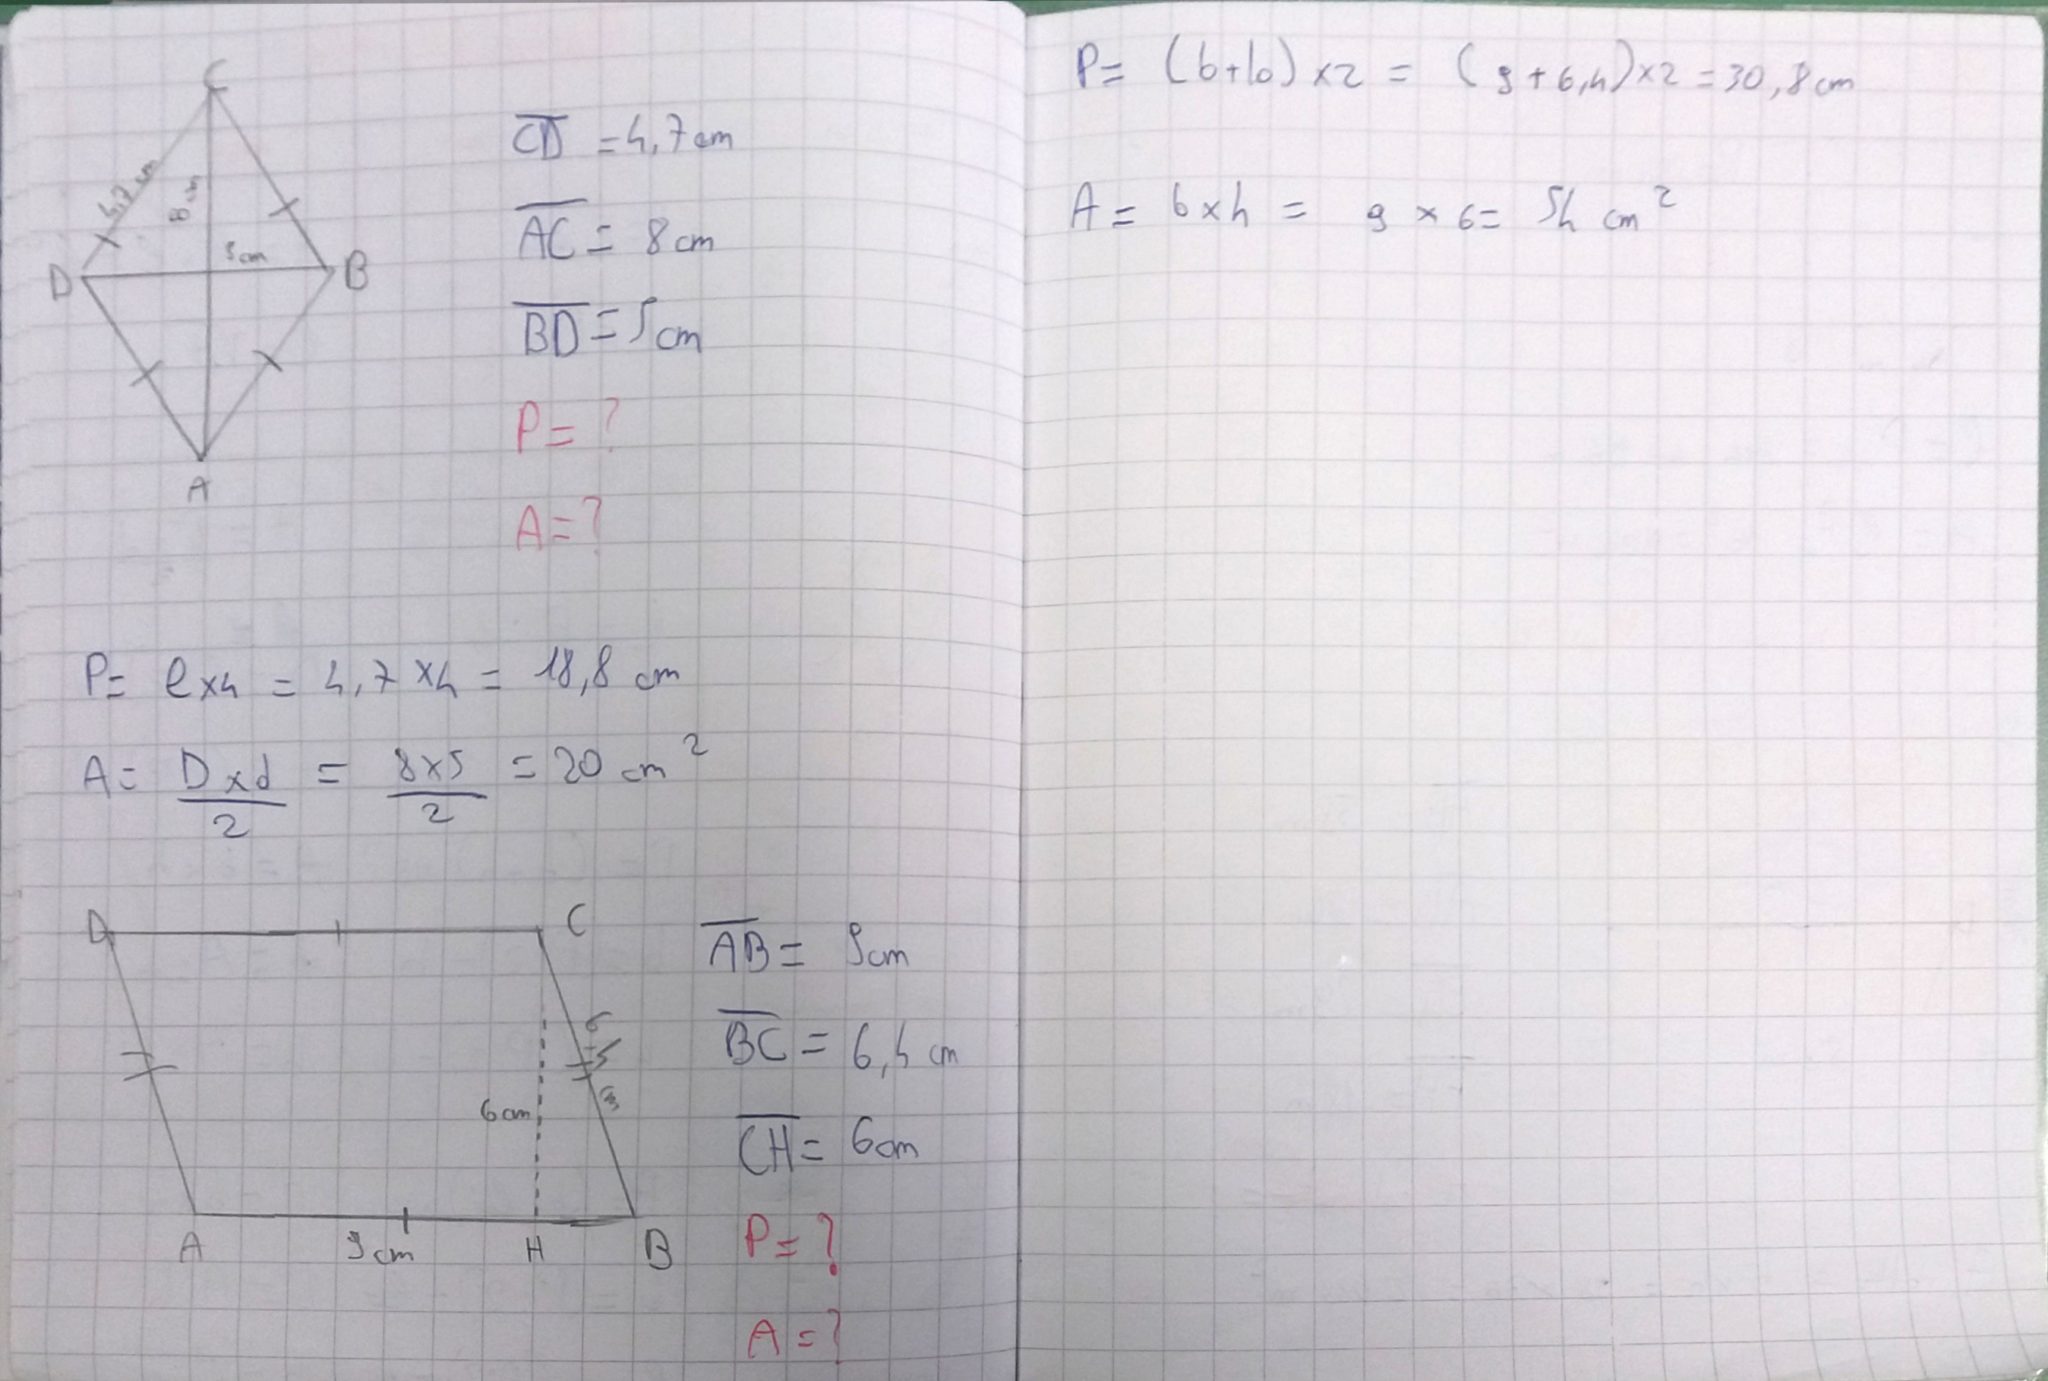 C
4,7 cm
8 cm
5 cm
D
B
A
CD = 4,7 cm
AC = 8 cm
BD = 5 cm
P = ?
A = ?
P = l x 4 = 4,7 x 4 = 18,8 cm
A = D x d / 2 = 8 x 5 / 2 = 20 cm²
D
C
6,4 cm
6 cm
A
9 cm
H
B
AB = 9 cm
BC = 6,4 cm
CH = 6 cm
P = ?
A = ?
P = (b + lo) x 2 = (9 + 6,4) x 2 = 30,8 cm
A = b x h = 9 x 6 = 54 cm²